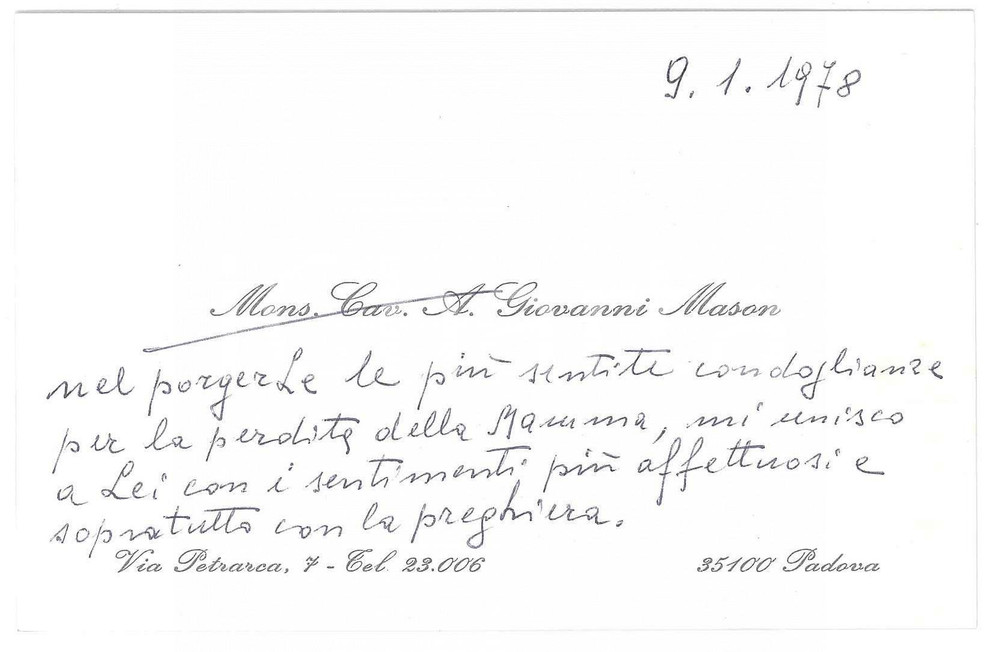 9. 1. 1978
Mons. Cav. A. Giovanni Mason
nel porgerLe le più sentite condoglianze
per la perdita della Mamma, mi unisco
a Lei con i sentimenti più affettuosi e
sopratutto con la preghiera.
Via Petrarca, 7 - Tel. 23.006 35100 Padova